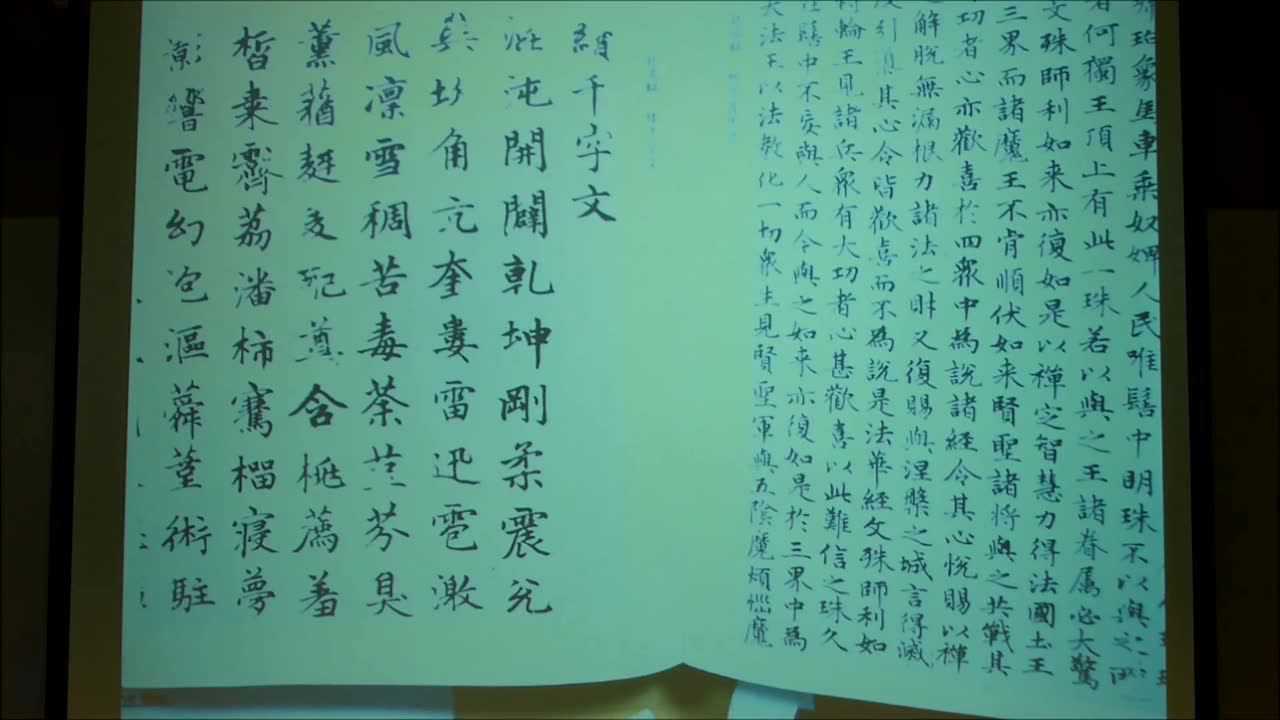 珀象馬車乘奴婢人民唯髻中明珠不以與之所
者何獨王頂上有此一珠若以與之王諸眷屬必大驚
文殊師利如來亦復如是以禪定智慧力得法國土王
三界而諸魔王不肯順伏如來賢聖諸將與之共戰其
功者心亦歡喜於四衆中為說諸經令其心悅賜以禪
解脫無漏根力諸法之財又復賜與涅槃之城言得滅
度引導其心令皆歡喜而不為說是法華經文殊師利如
轉輪王見諸兵衆有大功者心甚歡喜以此難信之珠久
在髻中不妄與人而今與之如來亦復如是於三界中為
大法王以法教化一切衆生見賢聖軍與五陰魔煩惱魔
續千字文
混沌開闢乾坤剛柔震兌
角亢奎婁雷迅雹激
風凛雪稠苦毒荼芬臭
薰蕕含桃薦羞
皙棗霽荔潘柿騫榴寢夢
電幻泡漚蕣堇術駐